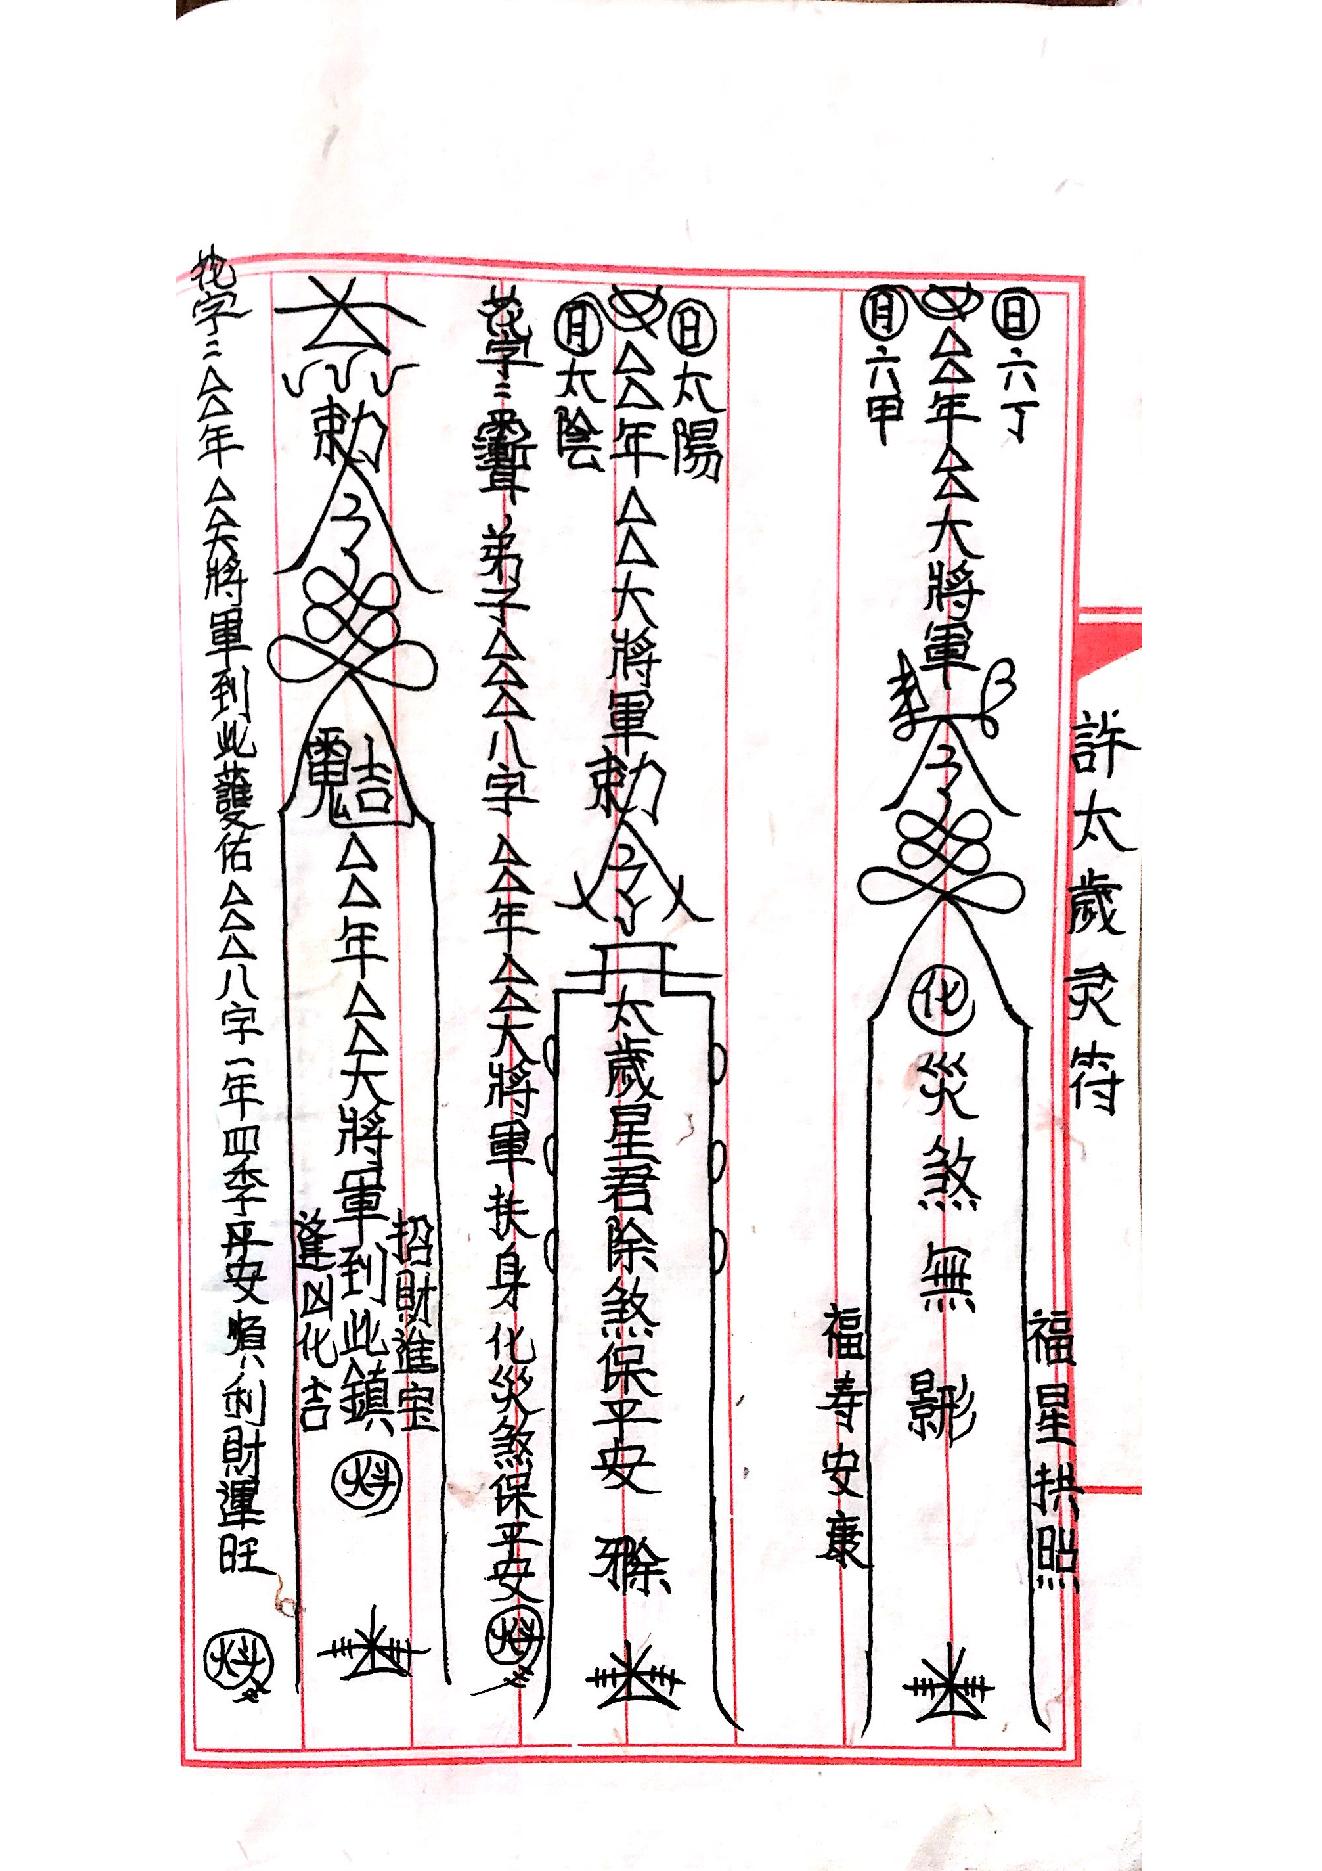 許太歲灵符
日六丁
△△年△△大將軍
月六甲
勅令
化災煞無影
福星拱照
福寿安康
日太陽
△△年△△大將軍勅令
月太陰
太歲星君除煞保平安
花字:弟子△△△八字△△年△△大將軍扶身化災煞保平安
勅令
△△年△△大將軍到此鎮
招財進宝
逢凶化吉
花字:△△年△△大將軍到此護佑△△△八字一年四季平安順利財運旺